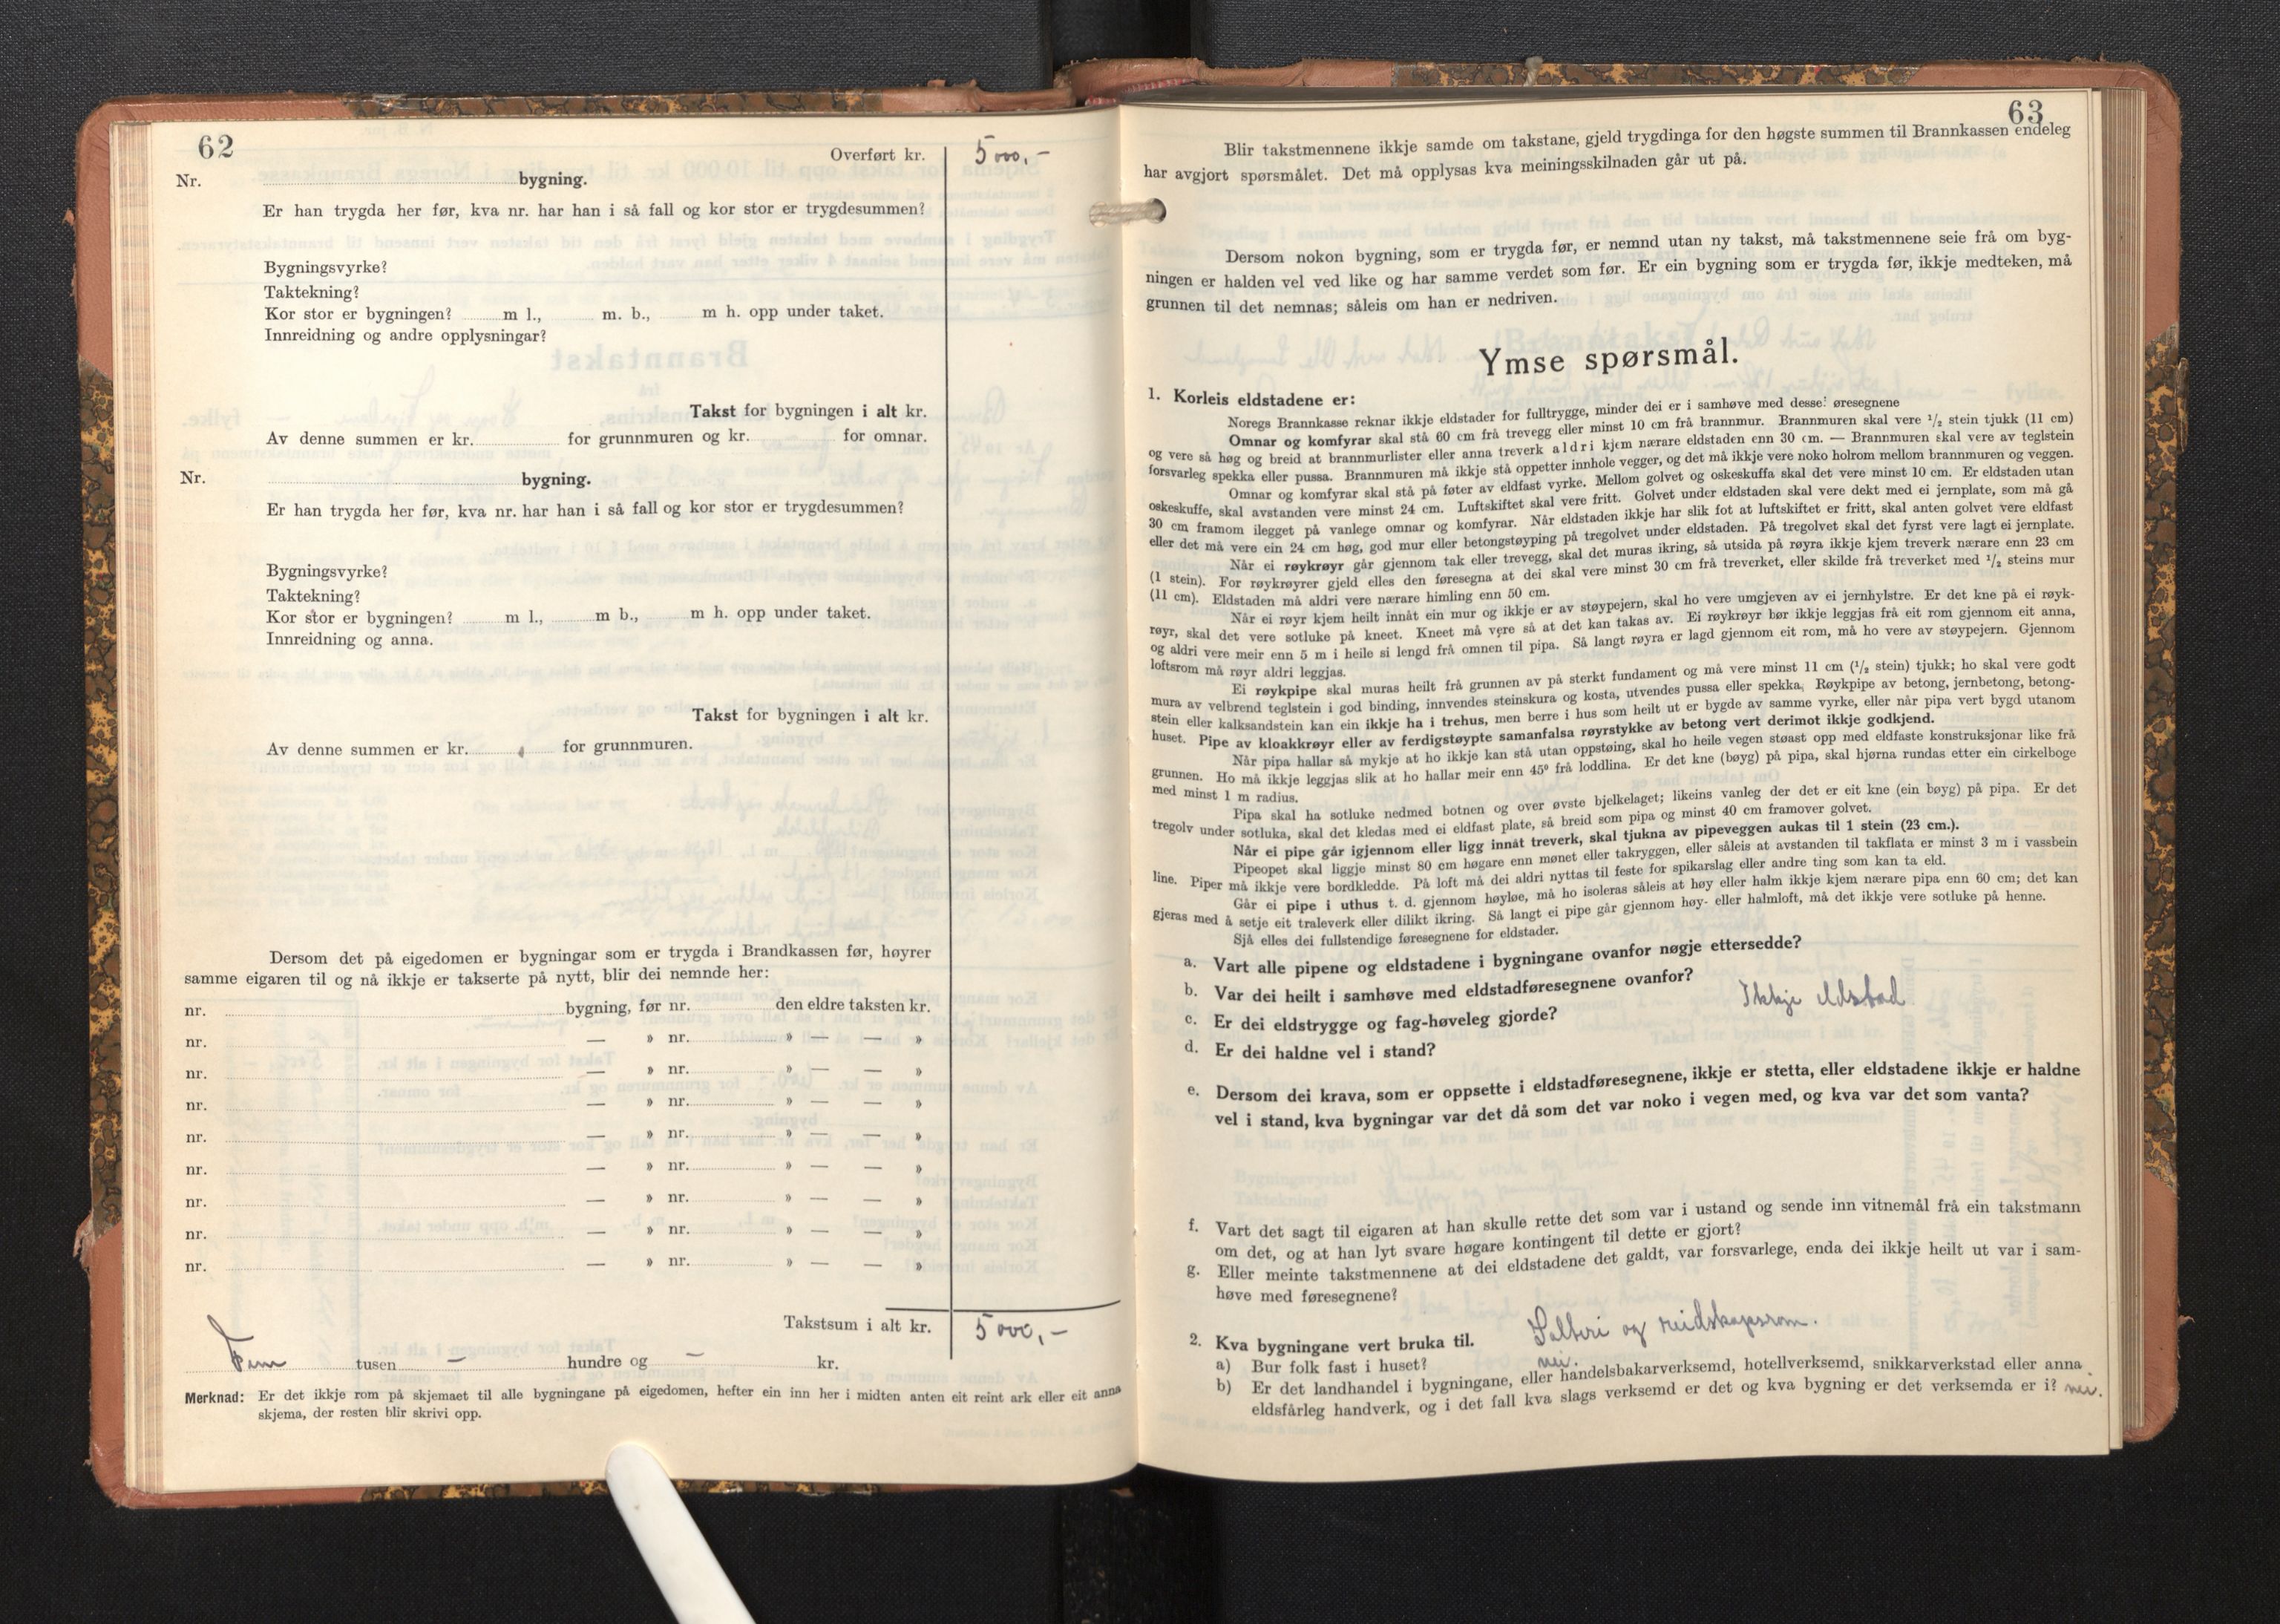 62
Overført kr. 5000,-
Nr. bygning.
Er han trygda her før, kva nr. har han i så fall og kor stor er trygdesummen?
Bygningsvyrke?
Taktekning?
Kor stor er bygningen? m l., m. b., m h. opp under taket.
Innreidning og andre opplysningar?
Takst for bygningen i alt kr.
Av denne summen er kr. for grunnmuren og kr. for omnar.
Nr. bygning.
Er han trygda her før, kva nr. har han i så fall og kor stor er trygdesummen?
Bygningsvyrke?
Taktekning?
Kor stor er bygningen? m l., m b., m h. opp under taket.
Innreidning og anna.
Takst for bygningen i alt kr.
Av denne summen er kr. for grunnmuren.
Dersom det på eigedomen er bygningar som er trygda i Brandkassen før, høyrer
samme eigaren til og nå ikkje er takserte på nytt, blir dei nemnde her:
nr. bygning, før nr. den eldre taksten kr.
nr. — » nr. » — — »
nr. — » nr. » — — »
nr. — » nr. » — — »
nr. — » nr. » — — »
nr. — » nr. » — — »
nr. — » nr. » — — »
nr. — » nr. » — — »
nr. — » nr. » — — »
Takstsum i alt kr. 5000,-
Fem tusen - hundre og - kr.
Merknad: Er det ikkje rom på skjemaet til alle bygningane på eigedomen, hefter ein inn her i midten anten eit reint ark eller eit anna
skjema, der resten blir skrivi opp.
63
Blir takstmennene ikkje samde om takstane, gjeld trygdinga for den høgste summen til Brannkassen endeleg
har avgjort spørsmålet. Det må opplysas kva meiningsskilnaden går ut på.
Dersom nokon bygning, som er trygda før, er nemnd utan ny takst, må takstmennene seie frå om byg-
ningen er halden vel ved like og har samme verdet som før. Er ein bygning som er trygda før, ikkje medteken, må
grunnen til det nemnas; såleis om han er nedriven.
Ymse spørsmål.
1. Korleis eldstadene er:
Noregs Brannkasse reknar ikkje eldstader for fulltrygge, minder dei er i samhøve med desse: øresegnene
Omnar og komfyrar skal stå 60 cm frå trevegg eller minst 10 cm frå brannmur. Brannmuren skal vere 1/2 stein tjukk (11 cm)
og vere så høg og breid at brannmurlister eller anna treverk aldri kjem nærare eldstaden enn 30 cm. — Brannmuren skal vere av teglstein
forsvarleg spekka eller pussa. Brannmuren må ikkje stå oppetter innhole vegger, og det må ikkje vere noko holrom mellom brannmuren og veggen.
Omnar og komfyrar skal stå på føter av eldfast vyrke. Mellom golvet og oskeskuffa skal det vere minst 10 cm. Er eldstaden utan
oskeskuffe, skal avstanden vere minst 24 cm. Luftskiftet skal vere fritt. Golvet under eldstaden skal vere dekt med ei jernplate, som må gå
30 cm framom ilegget på vanlege omnar og komfyrar. Når eldstaden ikkje har slik fot at luftskiftet er fritt, skal anten golvet vere eldfast
eller det må vere ein 24 cm høg, god mur eller betongstøyping på tregolvet under eldstaden. På tregolvet skal det fyrst vere lagt ei jernplate.
Når ei røykrøyr går gjennom tak eller trevegg, skal det muras ikring, så utsida på røyra ikkje kjem treverk nærare enn 23 cm
(1 stein). For røykrøyrer gjeld elles den føresegna at dei skal vere minst 30 cm frå treverket, eller skilde frå treverket med 1/2 steins mur
(11 cm). Eldstaden må aldri vere nærare himling enn 50 cm.
Når ei røyr kjem heilt innåt ein mur og ikkje er av støypejern, skal ho vere umgjeven av ei jernhylstre. Er det kne på ei røyk-
røyr, skal det vere sotluke på kneet. Kneet må vere så at det kan takas av. Ei røykrøyr bør ikkje leggjas frå eit rom gjennom eit anna,
og aldri vere meir enn 5 m i heile si lengd frå omnen til pipa. Så langt røyra er lagd gjennom eit rom, må ho vere av støypejern. Gjennom
loftsrom må røyr aldri leggjas.
Ei røykpipe skal muras heilt frå grunnen av på sterkt fundament og må vere minst 11 cm (1/2 stein) tjukk; ho skal vere godt
mura av velbrend teglstein i god binding, innvendes steinskura og kosta, utvendes pussa eller spekka. Røykpipe av betong, jernbetong, betong-
stein eller kalksandstein kan ein ikkje ha i trehus, men berre i hus som heilt ut er bygde av samme vyrke, eller når pipa vert bygd utanom
huset. Pipe av kloakkrøyr eller av ferdigstøypte samanfalsa røyrstykke av betong vert derimot ikkje godkjend.
Når pipa hallar så mykje at ho ikkje kan stå utan oppstøing, skal ho heile vegen støast opp med eldfaste konstruksjonar like frå
grunnen. Ho må ikkje leggjas slik at ho hallar meir enn 45° frå loddlina. Er det kne (bøyg) på pipa, skal hjørna rundas etter ein cirkelboge
med minst 1 m radius.
Pipa skal ha sotluke nedmed botnen og over øvste bjelkelaget; likeins vanleg der det er eit kne (ein bøyg) på pipa. Er det
tregolv under sotluka, skal det kledas med ei eldfast plate, så breid som pipa og minst 40 cm framover golvet.
Når ei pipe går igjennom eller ligg innåt treverk, skal tjukna av pipeveggen aukas til 1 stein (23 cm.).
Pipeopet skal liggje minst 80 cm høgare enn mønet eller takryggen, eller såleis at avstanden til takflata er minst 3 m i vassbein
line. Piper må ikkje vere bordkledde. På loft må dei aldri nyttas til feste for spikarslag eller andre ting som kan ta eld.
Går ei pipe i uthus t. d. gjennom høyløe, må ho isoleras såleis at høy eller halm ikkje kjem nærare pipa enn 60 cm; det kan
gjeras med å setje eit traleverk eller dilikt ikring. Så langt ei pipe går gjennom høy- eller halmloft, må det ikkje vere sotluke på henne.
Sjå elles dei fullstendige føresegnene for eldstader.
a. Vart alle pipene og eldstadene i bygningane ovanfor nøgje ettersedde?
b. Var dei heilt i samhøve med eldstadføresegnene ovanfor?
Ikkje eldstad
c. Er dei eldstrygge og fag-høveleg gjorde?
d. Er dei haldne vel i stand?
e. Dersom dei krava, som er oppsette i eldstadføresegnene, ikkje er stetta, eller eldstadene ikkje er haldne
vel i stand, kva bygningar var det då som det var noko i vegen med, og kva var det som vanta?
f. Vart det sagt til eigaren at han skulle rette det som var i ustand og sende inn vitnemål frå ein takstmann
om det, og at han lyt svare høgare kontingent til dette er gjort?
g. Eller meinte takstmennene at dei eldstadene det galdt, var forsvarlege, enda dei ikkje heilt ut var i sam-
høve med føresegnene?
2. Kva bygningane vert bruka til. Salteri og reidskapsrom.
a) Bur folk fast i huset? nei.
b) Er det landhandel i bygningane, eller handelsbakarverksemd, hotellverksemd, snikkarverkstad eller anna
eldsfårleg handverk, og i det fall kva slags verksemd er det og kva bygning er det verksemda er i? nei.